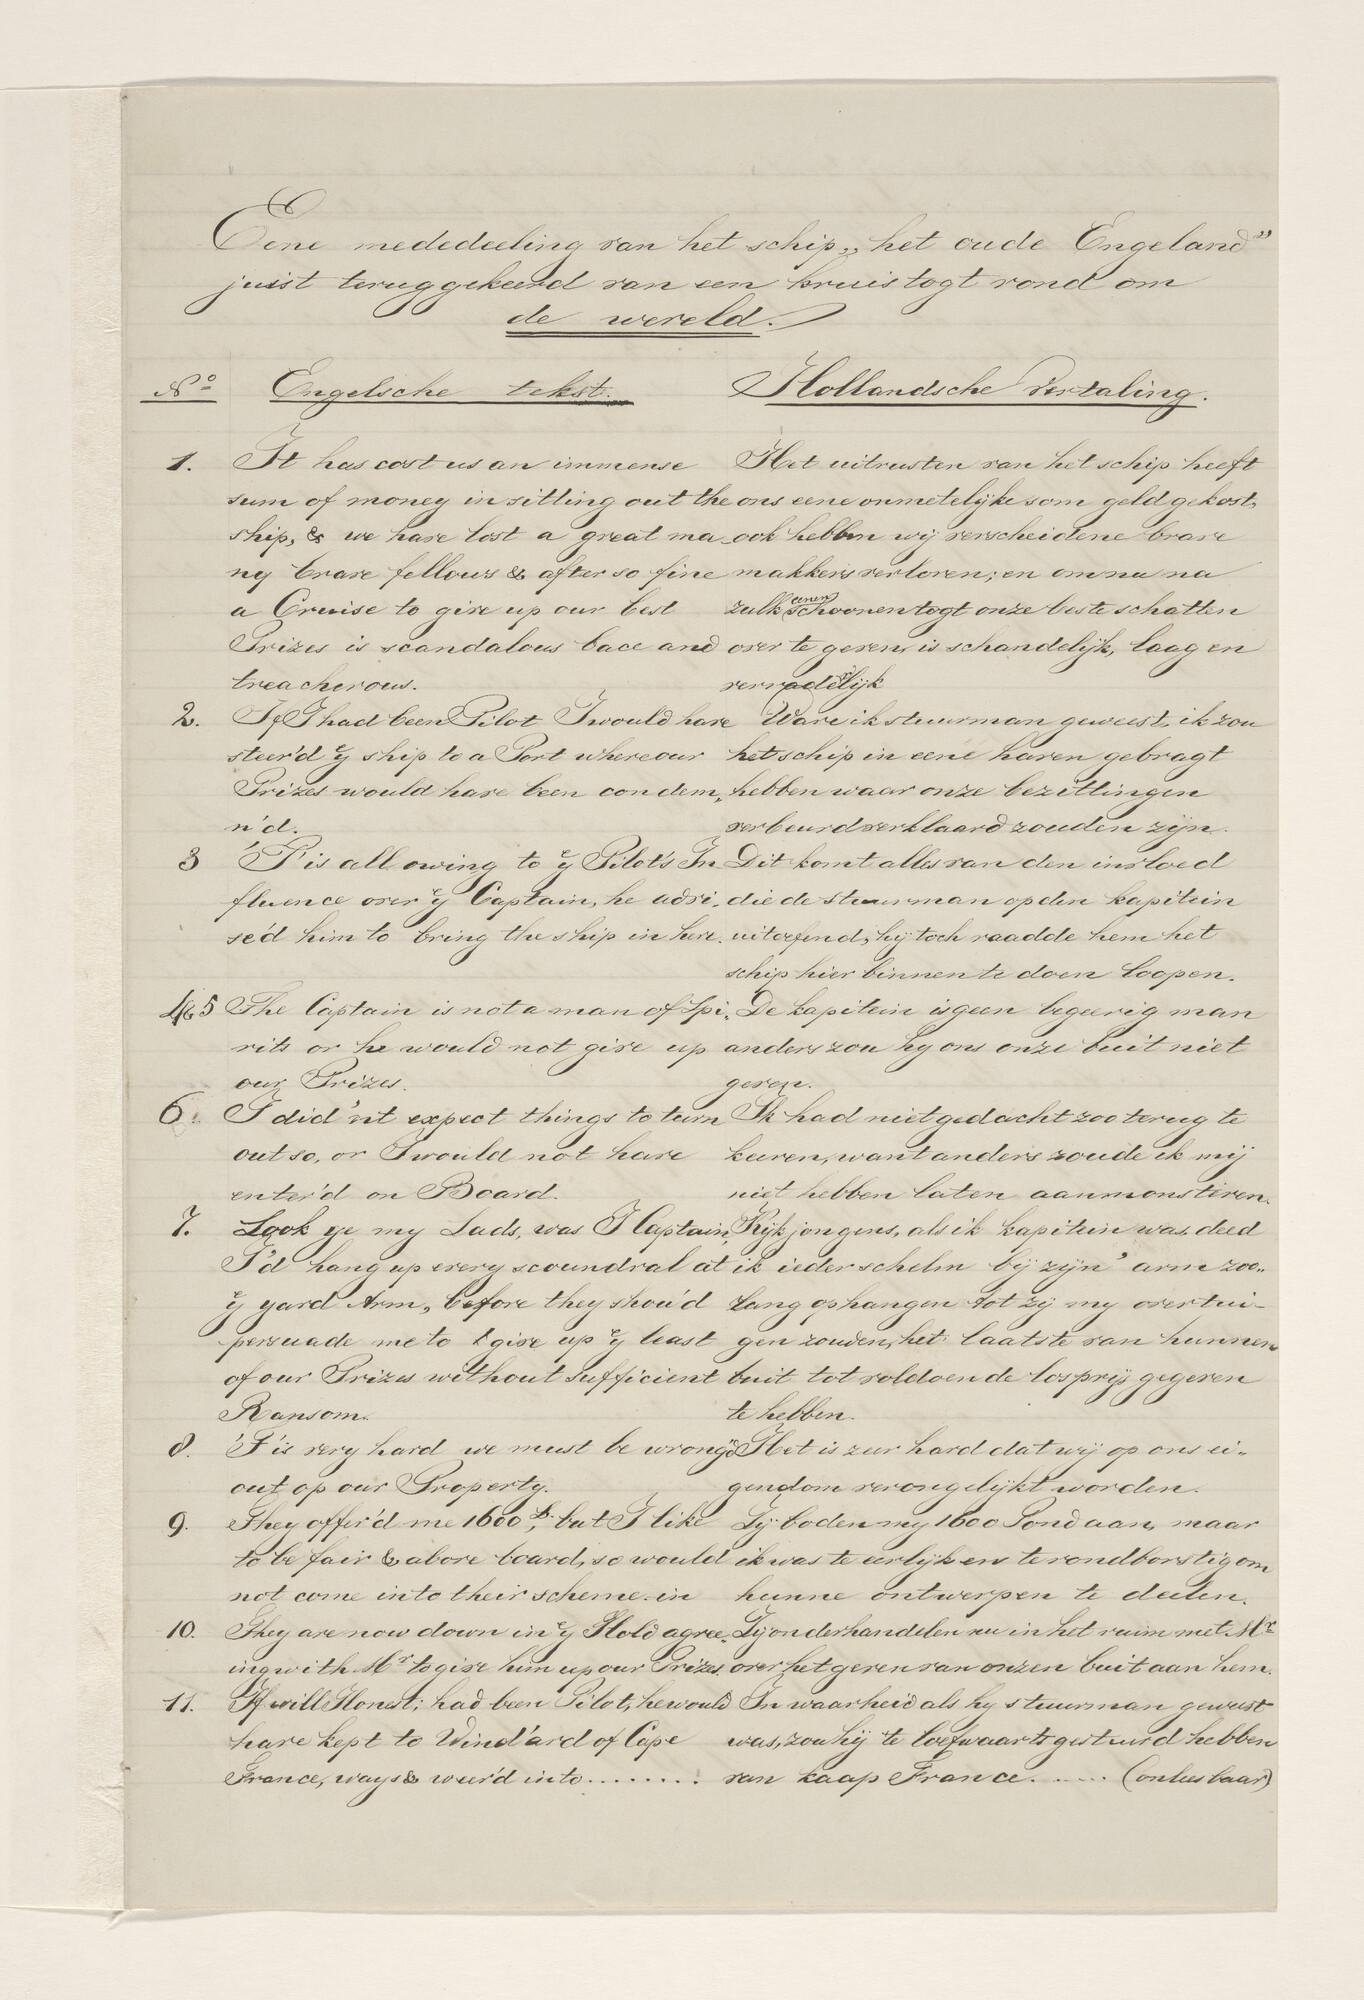 Eene mededeeling van het schip „het oude Engeland”
juist teruggekeerd van een kruistogt rond om
de wereld.
No Engelsche tekst. Hollandsche Vertaling.
1. It has cost us an immense
sum of money in sitting out the
ship, & we have lost a great ma-
ny brave fellows & after so fine
a Cruise to give up our best
Prizes is scandalous bace and
treacherous.
Het uitrusten van het schip heeft
ons eene onmetelijke som geld gekost,
ook hebben wij verscheidene brave
makkers verloren; en om nu na
zulk eenen schoonen togt onze beste schatten
over te geven, is schandelijk, laag en
verradelijk
2. If I had been Pilot I would have
steer'd ye ship to a Port where our
Prizes would have been condem„
n'd.
Ware ik stuurman geweest, ik zou
het schip in eene haven gebragt
hebben waar onze bezittingen
verbeurdverklaard zouden zijn.
3 'T is all owing to ye Pilot's In
fluence over ye Captain, he advi„
se'd him to bring the ship in here.
Dit komt alles van den invloed
die de stuurman op den kapitein
uitoefend, hij toch raadde hem het
schip hier binnen te doen loopen.
4&5 The Captain is not a man of Spi„
rits or he would not give up
our Prizes.
De kapitein is geen begeerig man
anders zou hy ons onze buit niet
geven.
6. I did'nt expect things to turn
out so, or I would not have
enter'd on Board.
Ik had niet gedacht zoo terug te
keeren, want anders zoude ik mij
niet hebben laten aanmonsteren.
7. Look ye my Lads, was I Captain,
I'd hang up every scoundral at
ye yard Arm, before they shou'd
persuade me to give up ye least
of our Prizes without sufficient
Ransom.
Kijk jongens, als ik kapitein was, deed
ik ieder schelm bij zijn' arm zoo„
lang ophangen tot zij my overtui-
gen zouden, het laatste van hunnen
buit tot voldoende losprijs gegeven
te hebben.
8. 'T is very hard we must be wrong'd
out op our Property.
Het is zeer hard dat wij op ons ei„
gendom verongelijkt worden.
9. They offer'd me 1600 £, but I like
to be fair & above board, so would
not come into their scheme. in
Zij boden my 1600 Pond aan, maar
ik was te eerlijk en te rondborstig om
hunne ontwerpen te deelen.
10. They are now down in ye Hold agree„
ing with Mr to give him up our Prizes.
Zij onderhandelen nu in het ruim met Mr
over het geven van onzen buit aan hem.
11. If will Honest; had been Pilot, he would
have kept to Wind'ard of Cape
France, ways & weer'd into ........
In waarheid als hy stuurman geweest
was, zou hij te loefwaarts gestuurd hebben
van kaap France. ..... (onleesbaar)